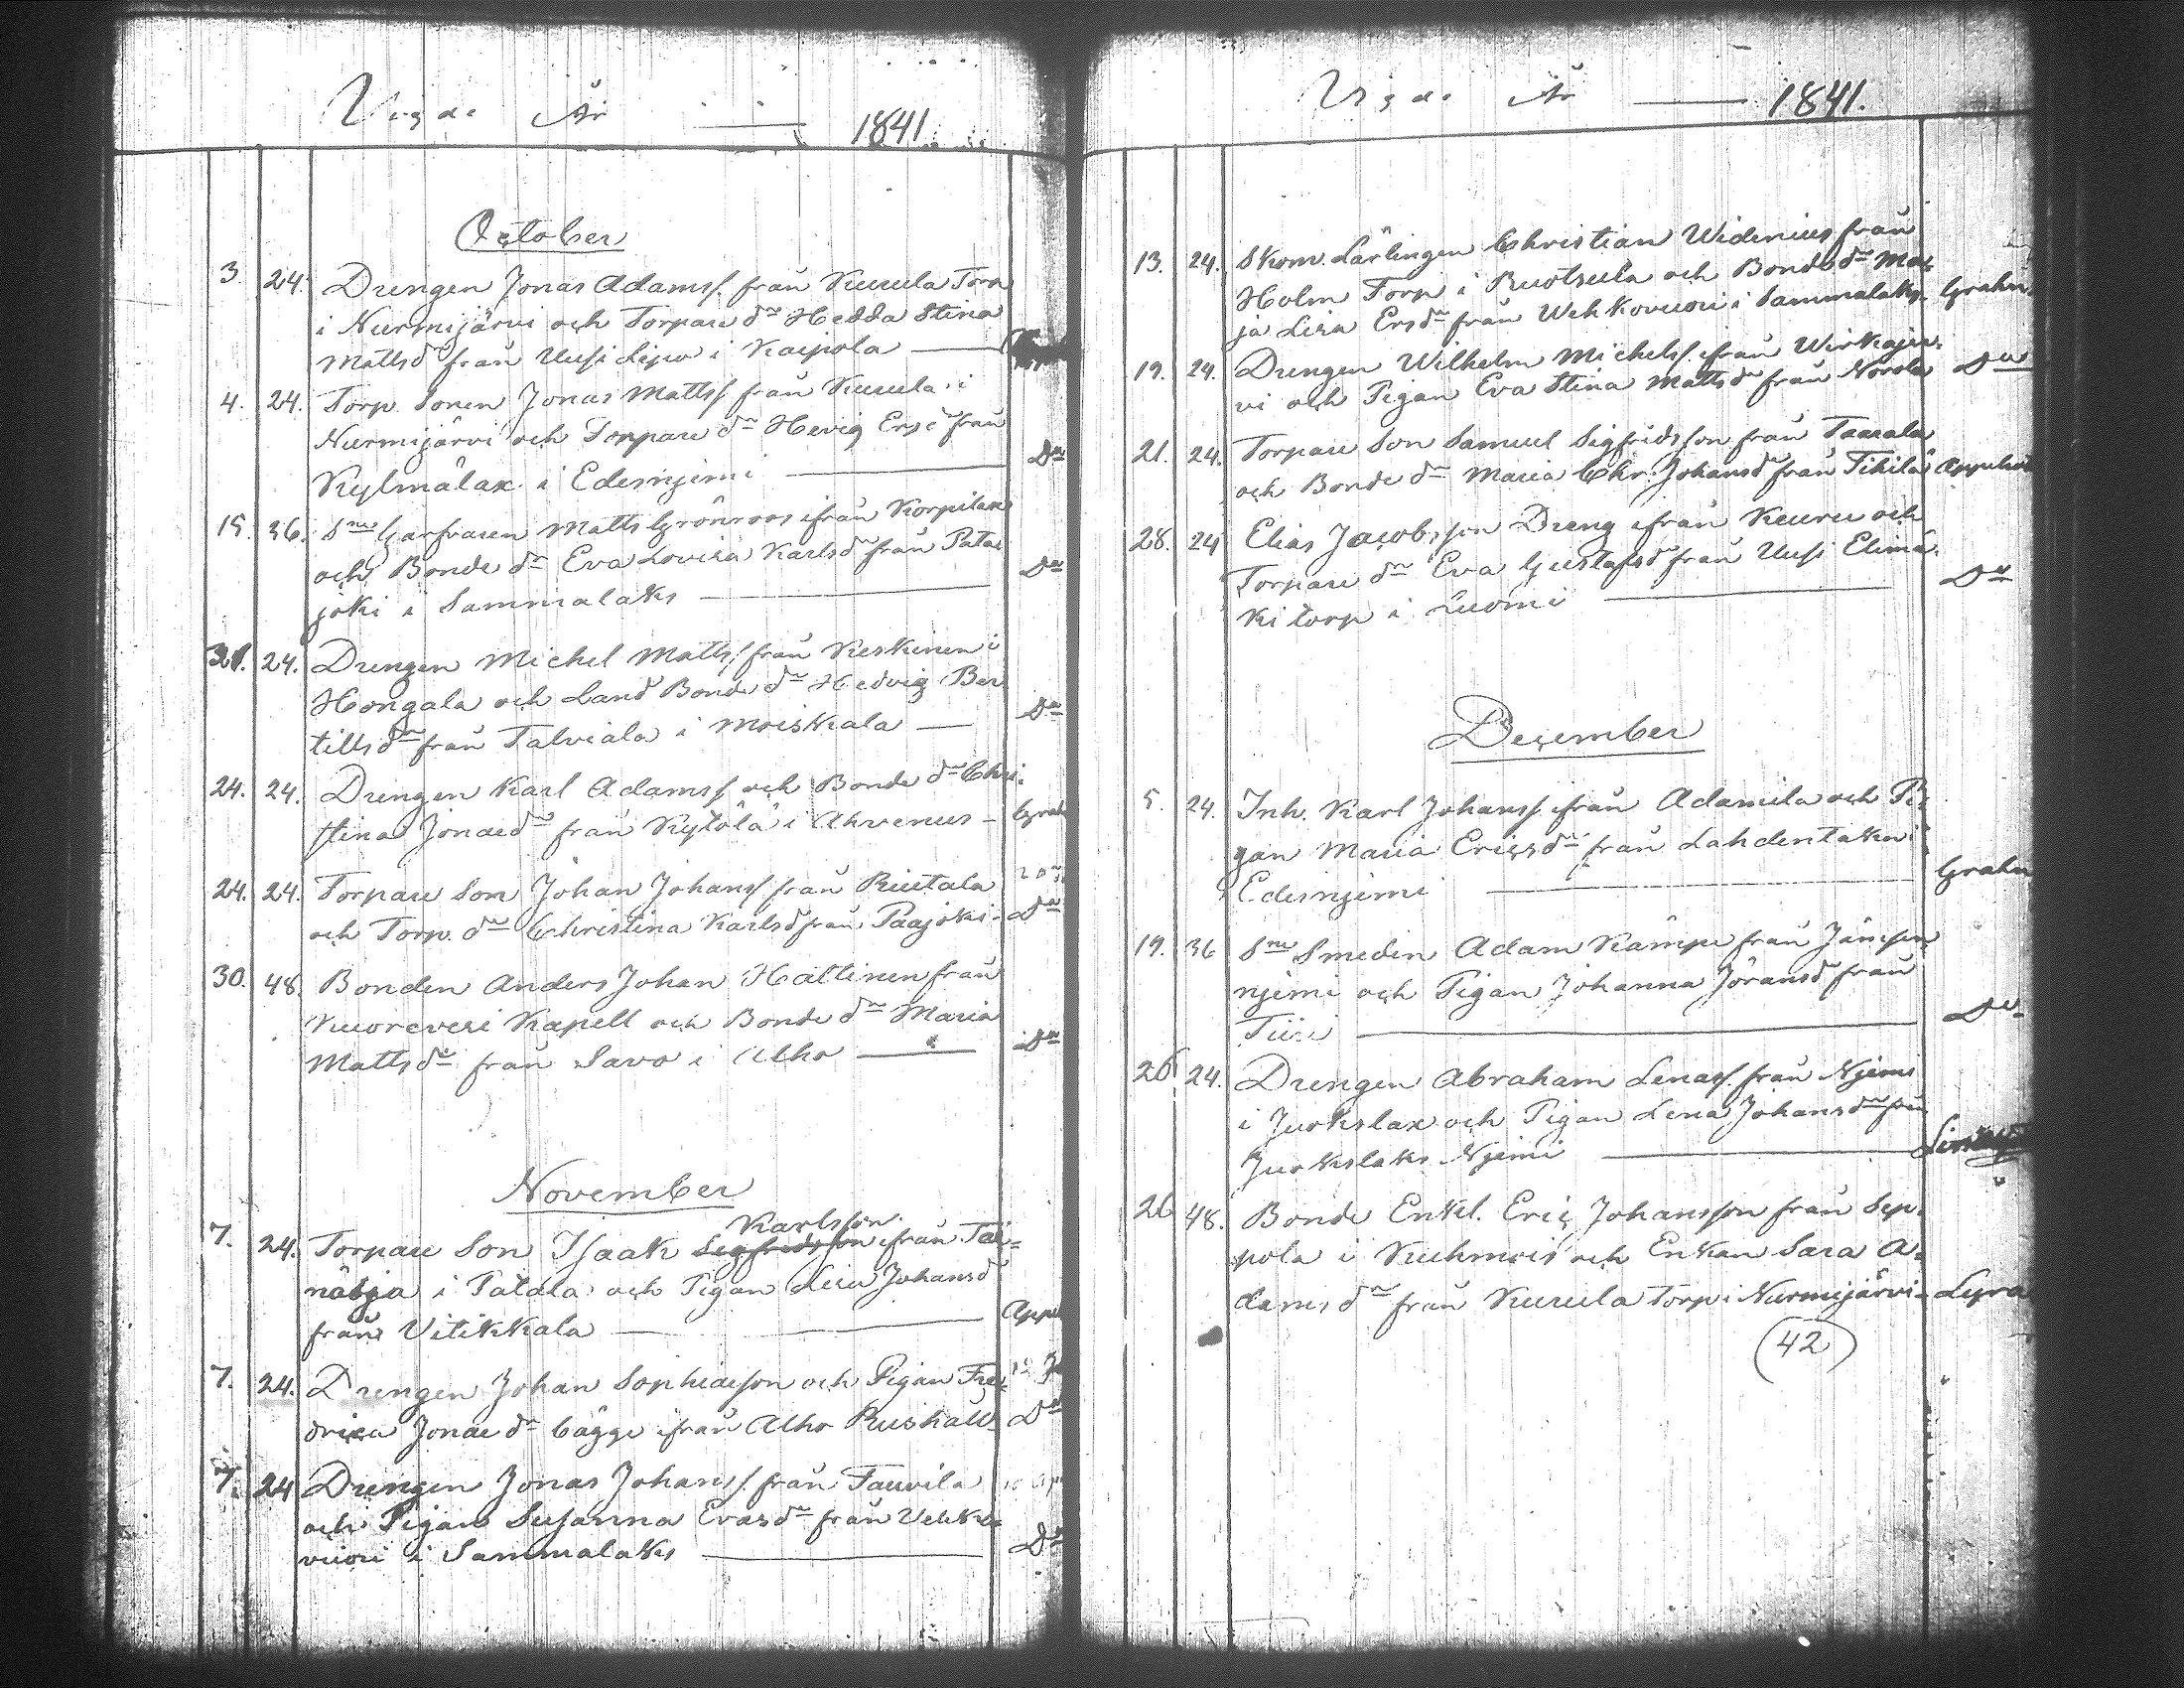 Vigde År 1841
October
3. 24. Drengen Jonas Adamss. från Kuuula Torp
i Nurmijärvi och Torpare dr Hedda Stina
Mattsdr från Uusi Lipo i Kaipola
4. 24. Torp. Sonen Jonas Matts. från Kuuula i
Nurmijärvi och Torpare dr Hevig Ersdr från
Kylmälax i Edesnjemi Do
15. 36. Garfvaren Matts Grönroos ifrån Korpilax
och Bonde dr Eva Lovisa Karlsdr från Pata
joki i Sammalaks Do
31. 24. Drengen Michel Matts. från Keskinen i
Hongala och Land Bonde dr Hedvig Ber
tills dr från Talviala i Moiskala Do
24. 24. Drengen Karl Adamss. och Bonde dr Chri-
stina Jonaedr från Kylölä i Ahvenus - Grah
24. 24. Torpare Son Johan Johanss. från Riutala
och Torp. dr Christina Karlsd från Paajoki - Do
30. 48. Bonden Anders Johan Hattinen från
Kuorevesi Kapell och Bonde dr Maria
Mattsdr från Savo i Alho Do
November
Karlsson
7. 24. Torpare Son Isaak Sigfridsson ifrån Tai-
i Patala och Pigan Johansd
från Vitikkala Appel
7. 24. Drengen Johan Sophiaeson och Pigan Fre-
drica Jonae dr bägge ifrån Alho Rusthåll Do
7. 24 Drengen Jonas Johanss. från Tauvila
och Pigan Susanna Evasdr från Vehko
vuori i Sammalaks Do
Vigde År 1841.
13. 24. Skom. Lärlingen Christian Widenius från
Holm Torp i Ruotsula och Bonde dr Ma-
ja Lisa Ersdr från Wehkovuori i Sammalaks. Grahn.
19. 24. Drengen Wilhelm Michelss. ifrån Wirkajär-
vi och Pigan Eva Stina Mattsdr från Norola Do
21. 24. Torpare Son Samuel Sigfridsson från Taarala
och Bonde dr Maria Chr. Johansd från Tihilä
28. 24 Elias Jacobsson Dreng ifrån Keuru och
Torpare dr Eva Gustafsdr från Uusi Elimä-
ki torp i Luomi Do
December
5. 24. Inh. Karl Johanss. ifrån Adamila och Pi-
gan Maria Ericsdr från Lahdentaka i
Edesnjemi Grahn
19. 36 Smeden Adam Kämpe från Jämsen-
njemi och Pigan Johanna Göransdr från
Do
26 24. Drengen Abraham Lenass. från Njemi
i Juokslax och Pigan Lena Johansdr från
Juokslaks Njemi
26 48. Bonde Enkl. Eric Johansson från Sep-
pola i Kuhmois och Enkan Sara A-
dams dr från Kuuula torp i Nurmijärvi - Lyra
(42)